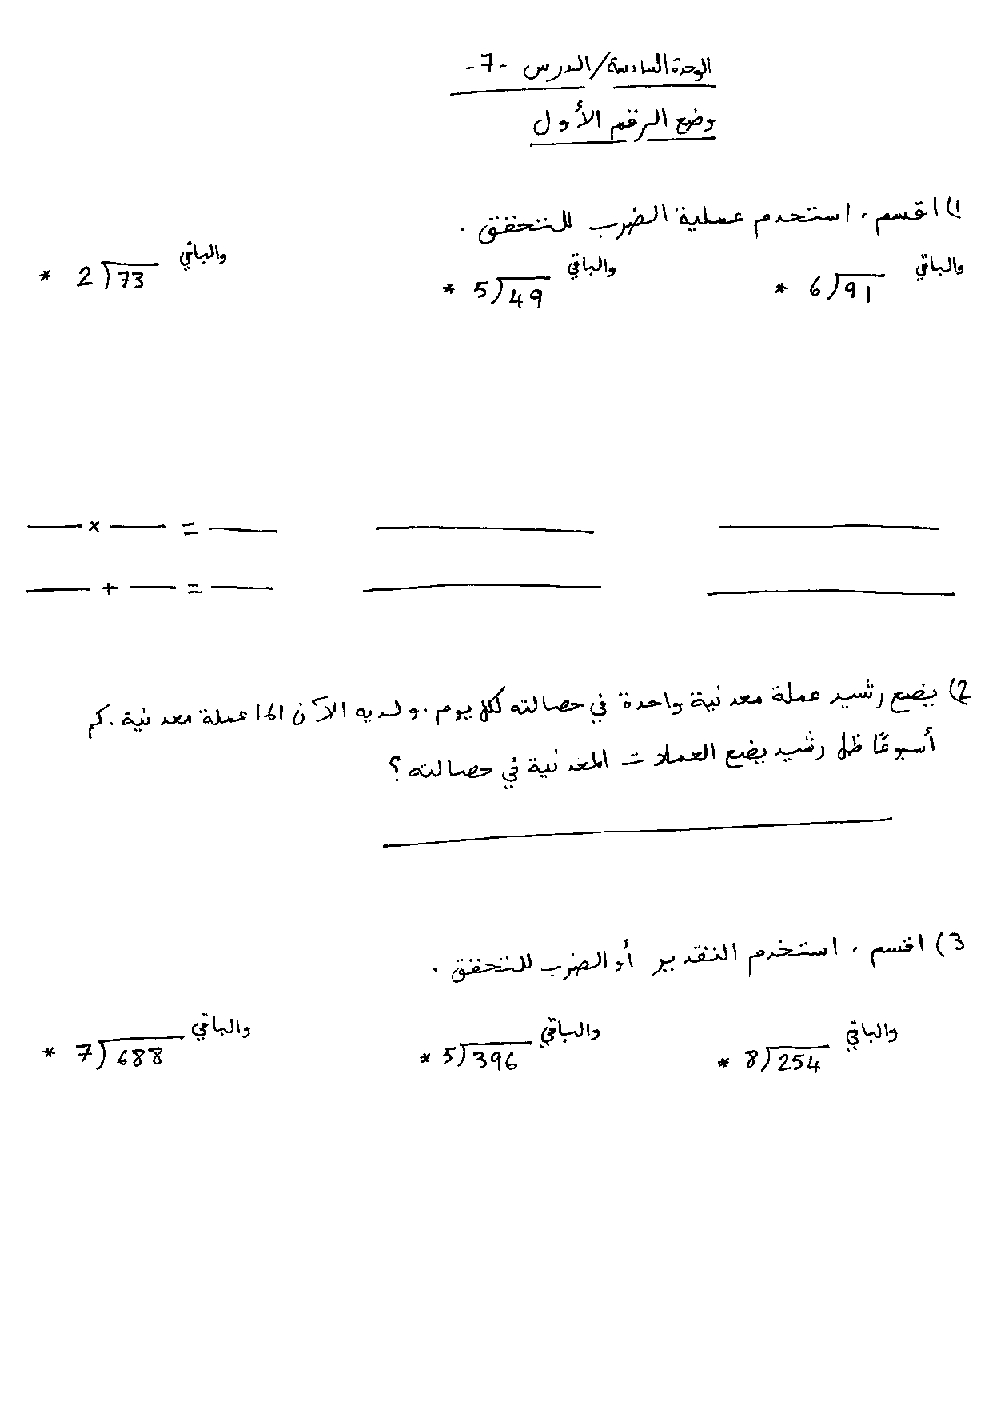 الوحدة السادسة / الدرس -7-
وضع الرقم الأول
1) اقسم، استخدم عملية الضرب للتحقق.
* 2)73 والباقي * 5)49 والباقي * 6)91 والباقي
___ × ___ = ___
___ + ___ = ___
2) يضع رشيد عملة معدنية واحدة في حصالته كل يوم. ولديه الآن عملة معدنية. كم
أسبوعًا ظل رشيد يضع العملات المعدنية في حصالته؟
3) اقسم، استخدم التقدير أو الضرب للتحقق.
* 7)688 والباقي * 5)396 والباقي * 8)254 والباقي